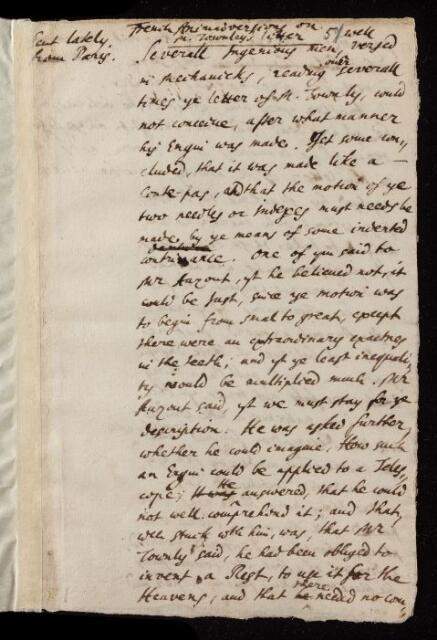 Sent lately
from Paris.
French Animadversions on
Mr. Townleys letter 5/
Severall Ingenious men, well versed
in Mechanicks, reading over severall
times ye letter of Mr. Townly, could
not conceive, after what manner
his Engin was made. Yet some con-
cluded, that it was made like a
Conte-pas, and that the motion of ye
two needles or indexes must needs be
made by ye means of some indented
contrivance. One of ym said to
Mr Auzout, yt he believed not, it
could be Just, since ye motion was
to begin from smal to great, except
there were an extraordinary exactnes
in the teeth; and yt ye least inequali-
ty would be multiplied much. Mr
Auzout said, yt we must stay for ye
description. He was asked further,
whether he could imagine, How such
an Engin could be applied to a Teles-
cope; He answered, that he could
not well comprehend it; and that,
wch stuck wth him, was, that Mr
Townly said, he had been obliged to
invent a Rest, to use it for the
Heavens, and that there needed no com